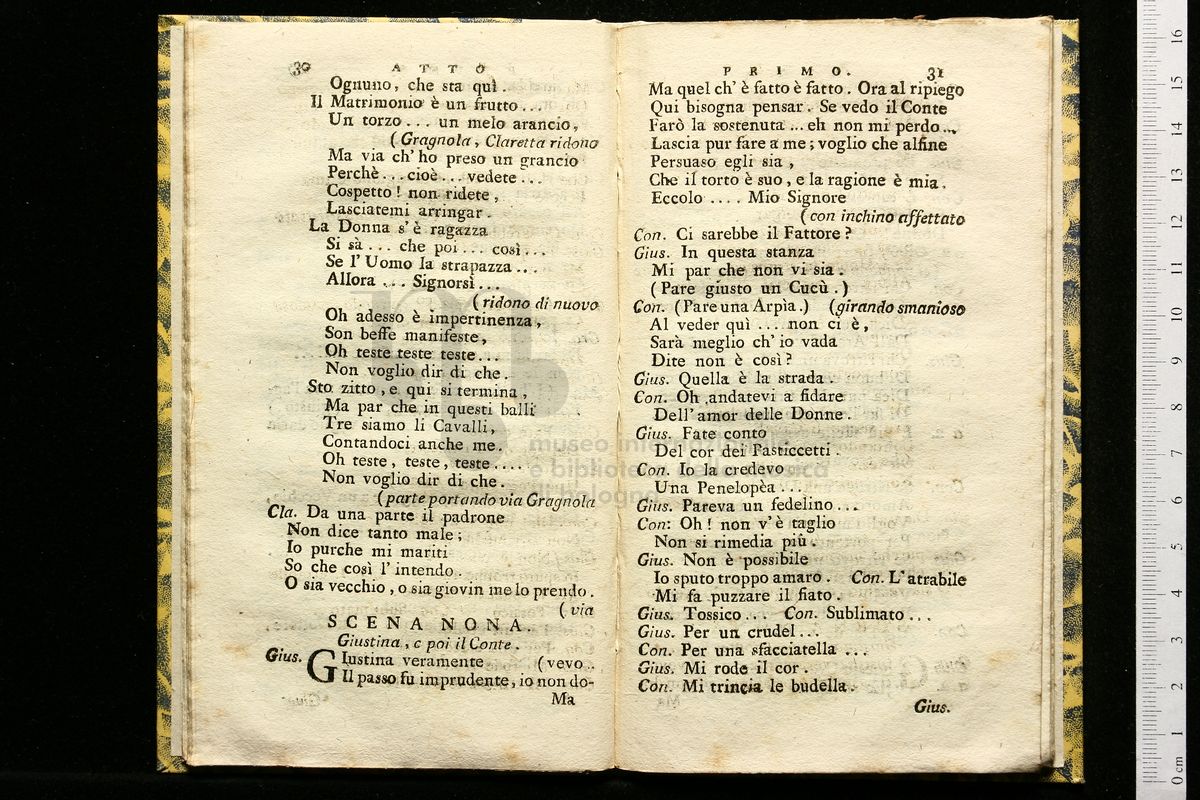 30 ATTO
Ognuno, che sta quì.
Il Matrimonio è un frutto...
Un torzo... un melo arancio,
(Gragnola, Claretta ridono
Ma via ch'ho preso un grancio
Perchè...cioè...vedete...
Cospetto! non ridete,
Lasciatemi arringar.
La Donna s'è ragazza
Si sà... che poi... così...
Se l'Uomo la strapazza...
Allora ... Signorsì...
(ridono di nuovo
Oh adesso è impertinenza,
Son beffe manifeste,
Oh teste teste teste...
Non voglio dir di che.
Sto zitto, e qui si termina,
Ma par che in questi balli
Tre siamo li Cavalli,
Contandoci anche me.
Oh teste, teste, teste....
Non voglio dir di che.
(parte portando via Gragnola
Cla. Da una parte il padrone
Non dice tanto male;
Io purche mi mariti
So che così l'intendo.
O sia vecchio, o sia giovin me lo prendo.
(via
SCENA NONA.
Giustina, e poi il Conte.
Gius. GIustina veramente (vevo..
Il passo fu imprudente, io non do-
Ma
PRIMO. 31
Ma quel ch'è fatto è fatto. Ora al ripiego
Qui bisogna pensar. Se vedo il Conte
Farò la sostenuta... eh non mi perdo...
Lascia pur fare a me; voglio che alfine
Persuaso egli sia,
Che il torto è suo, e la ragione è mia.
Eccolo .... Mio Signore
(con inchino affettato
Con. Ci sarebbe il Fattore?
Gius. In questa stanza
Mi par che non vi sia.
(Pare giusto un Cucù.)
Con. (Pare una Arpìa.) (girando smanioso
Al veder quì .... non ci è,
Sarà meglio ch'io vada
Dite non è così?
Gius. Quella è la strada.
Con. Oh andatevi a fidare
Dell'amor delle Donne.
Gius. Fate conto
Del cor dei Pasticcetti.
Con. Io la credevo
Una Penelopèa...
Gius. Pareva un fedelino...
Con: Oh! non v'è taglio
Non si rimedia più.
Gius. Non è possibile
Io sputo troppo amaro. Con. L'atrabile
Mi fa puzzare il fiato.
Gius. Tossico... Con. Sublimato...
Gius. Per un crudel...
Con. Per una sfacciatella ...
Gius. Mi rode il cor.
Con. Mi trincia le budella.
Gius.
museo internazionale
e biblioteca della musica
di bologna
0 cm 1 2 3 4 5 6 7 8 9 10 11 12 13 14 15 16